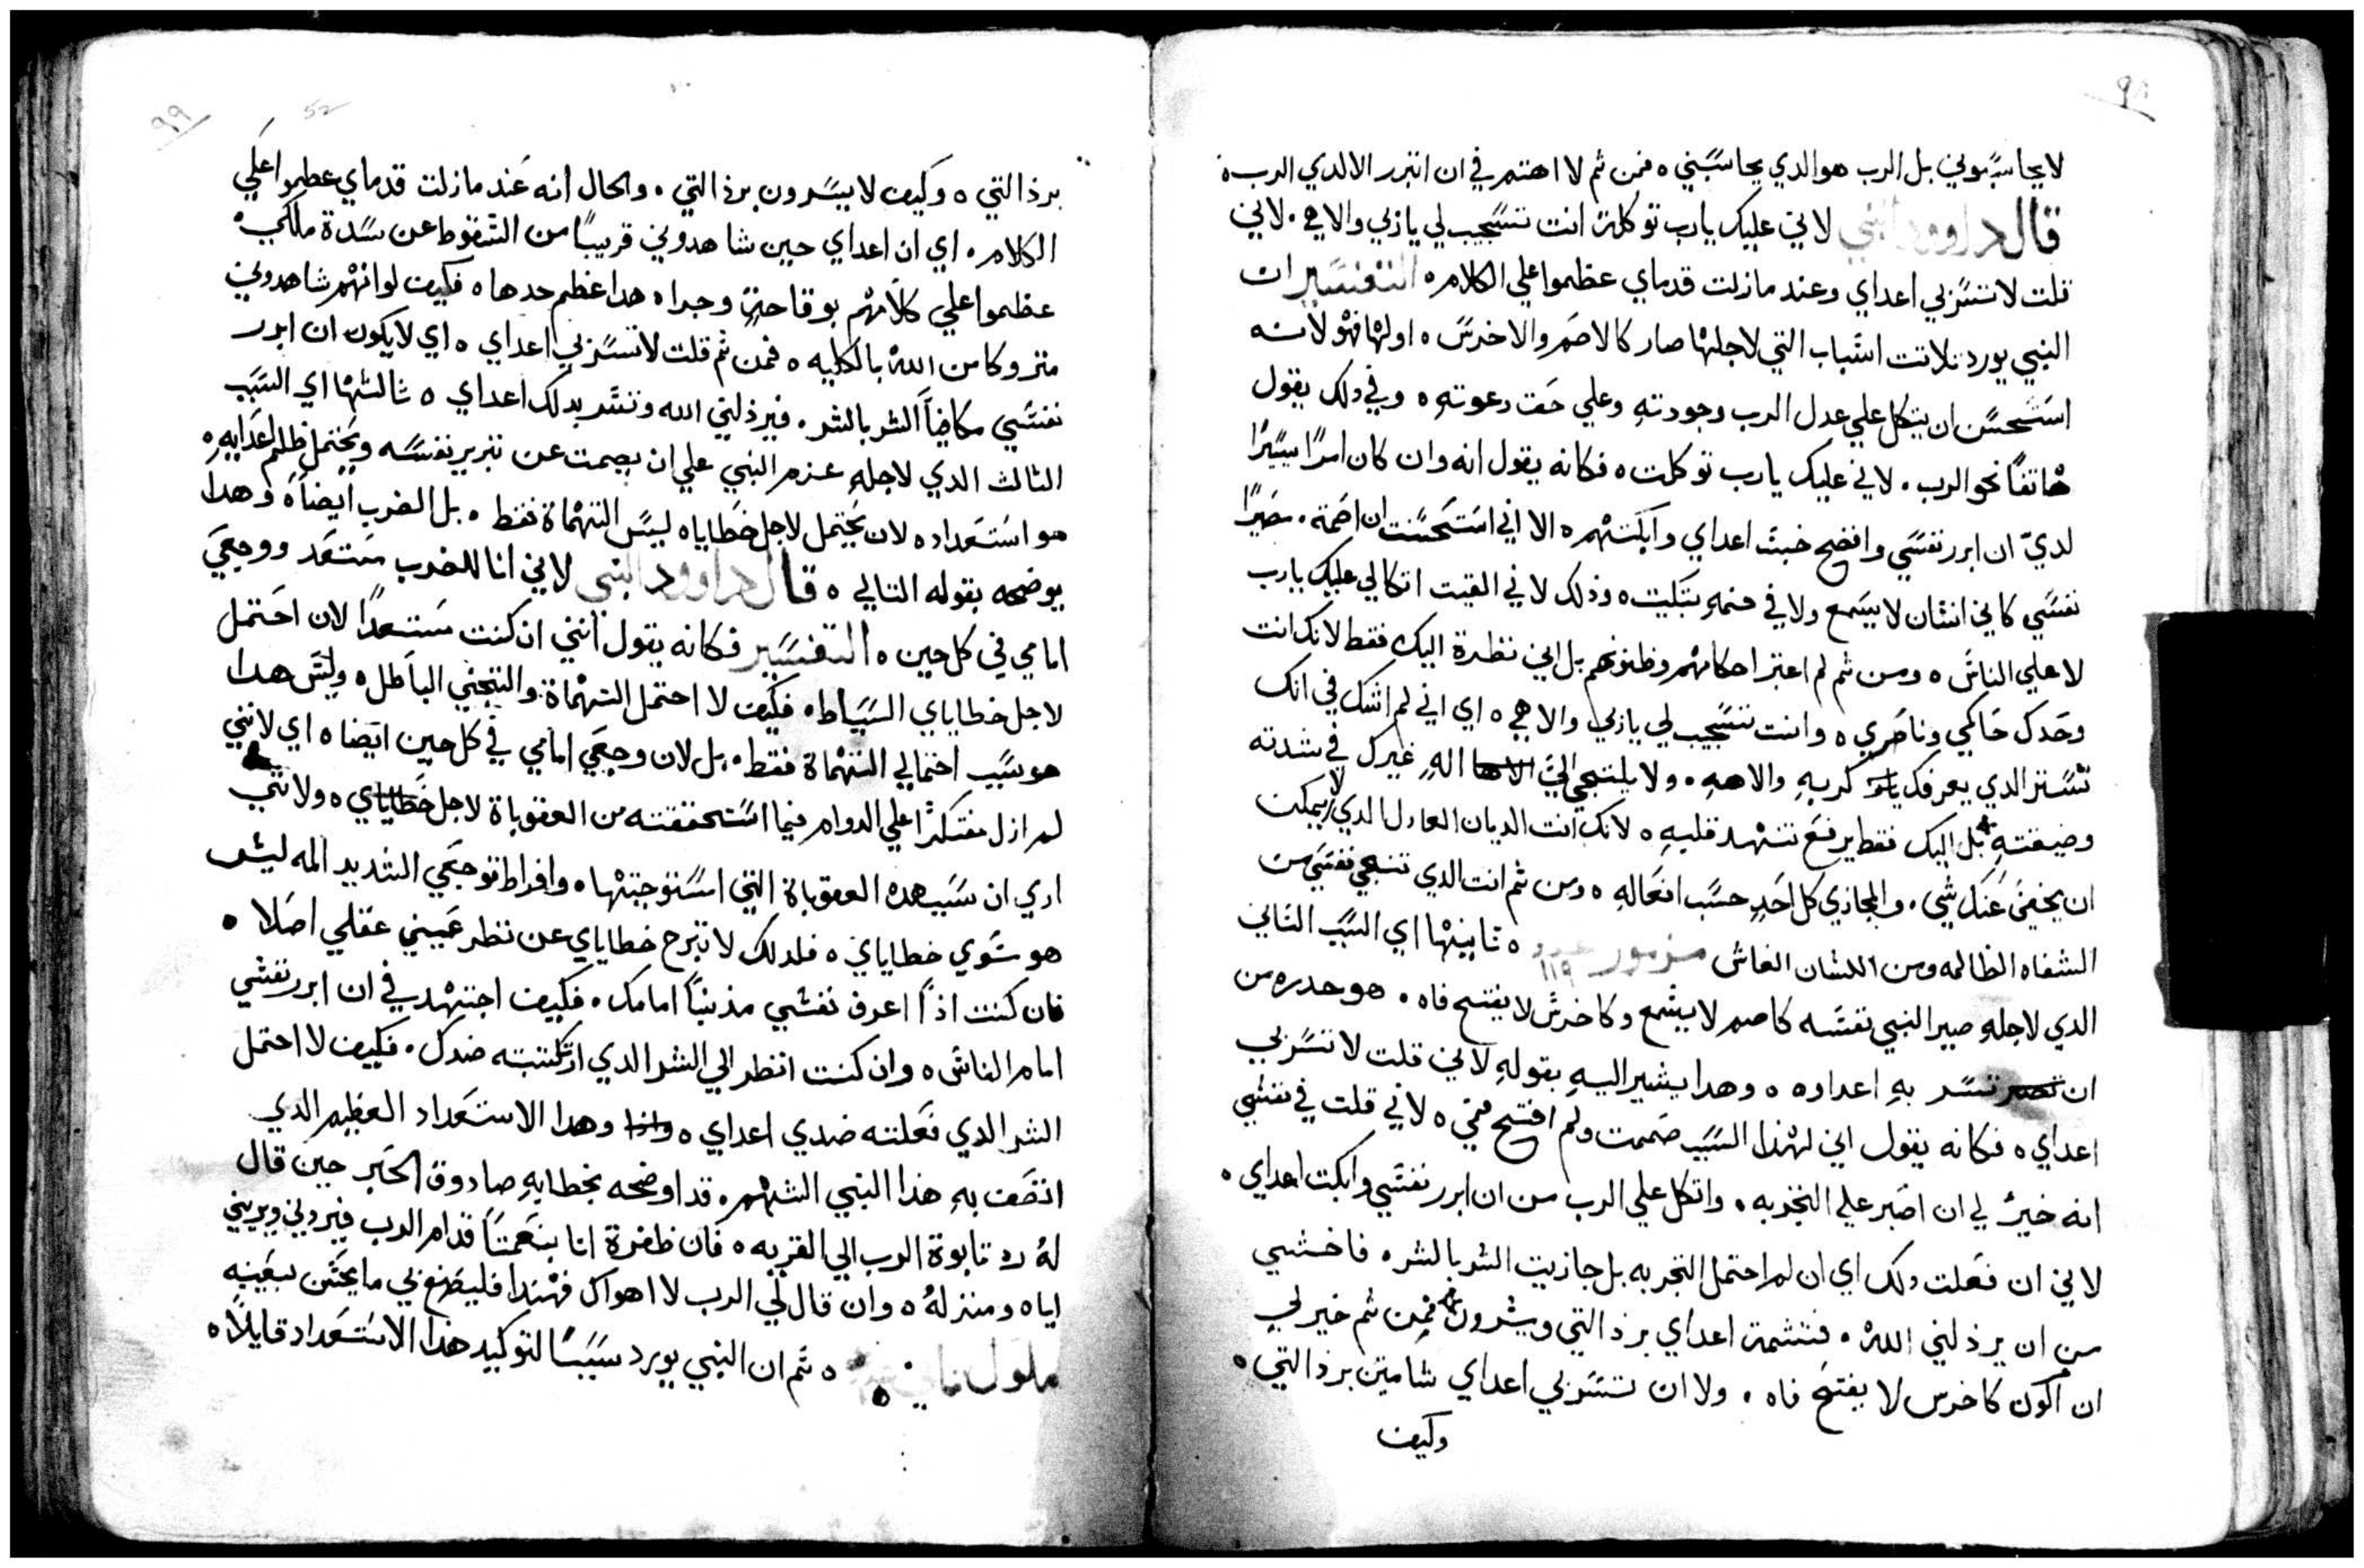 ٩٨
لا يحاسبوني بل الرب هو الدي يحاسبني ٥ فمن ثم لا اهتم في ان اتبرر الا لدي الرب ٥
قال داوود النبي لاني عليك يارب توكلت انت تستجيب لي يا ربي والاهي ٠ لاني
قلت لا تستر بي اعداي وعند ما زلت قدماي عظموا علي الكلام ٥ التفسير ان
النبي يورد تلاتت اسباب التي لاجلها صار كالاصم والاخرس ٥ اولها فهو لانه
استحسن ان يتكل علي عدل الرب وجودته وعلي حقت دعوته ٥ وفي دلك يقول
هاتفا نحو الرب ٠ لاني عليك يارب توكلت ٥ فكانه يقول انه وان كان امرا يسيرا
لدي ان ابرر نفسي وافضح خبث اعداي وابكتهم ٥ الا اني استحسنت ان اصمت ٠ مصيرا
نفسي كاني انسان لا يسمع ولا في فمه تبكيت ٥ وذلك لاني القيت اتكالي عليك يارب
لا علي الناس ٥ ومن ثم لم اعتبر احكامهم وظنونهم بل اني نظرة اليك فقط لانك انت
وحدك حاكمي وناصري ٥ وانت تستجيب لي يا ربي والاهي ٥ اي اني لم اشك في انك
تستر الدي يعرفك كربه والاهه ٠ ولا يلتجي الي اله غيرك في شدته
وضيقته بل اليك فقط يرفع تنهد قلبه ٥ لانك انت الديان العادل الدي لا يمكن
ان يخفي عنك شي ٠ والمجازي كل احد حسب افعاله ٥ ومن ثم انت الدي تنجي نفسي من
الشفاه الظالمه ومن اللسان الغاش مزمور عدد ١١٩ ٥ ثانيتها اي السبب التاني
الدي لاجله صير النبي نفسه كاصم لا يسمع وكاخرس لا يفتح فاه ٠ هو حدره من
ان تسر به اعداده ٥ وهدا يشير اليه بقوله لاني قلت لا تستر بي
اعداي ٥ فكانه يقول اني لهذا السبب صممت ولم افتح فمي ٥ لاني قلت في نفسي
انه خير لي ان اصبر علي التجربه ٠ واتكل علي الرب من ان ابرر نفسي وابكت اعداي ٥
لاني ان فعلت دلك اي ان لم احتمل التجربه بل جازيت الشر بالشر ٥ فاخشي
من ان يرذلني الله ٠ فتشمت اعداي برذالتي ويسرون فمن ثم خير لي
ان اكون كاخرس لا يفتح فاه ٠ ولا ان تستر بي اعداي شامتين برذالتي ٥
وكيف
٩٩
52
برذالتي ٥ وكيف لا يسرون برذالتي ٠ والحال انه عند ما زلت قدماي عظموا علي
الكلام ٠ اي ان اعداي حين شاهدوني قريبا من السقوط عن سدة ملكي ٠
عظموا علي كلامهم بوقاحة وجدا ٥ هدا عظم حدها ٥ فكيف لو انهم شاهدوني
متروكا من الله بالكليه ٥ فمن ثم قلت لا تستر بي اعداي ٥ اي لا يكون ان ابرر
نفسي مكافيا الشر بالشر ٠ فيرذلني الله وتسر بدلك اعداي ٥ ثالثها اي السبب
الثالث الدي لاجله عزم النبي علي ان يصمت عن تبرير نفسه ويحتمل ظلم اعدايه ٥
هو استعداده لان يحتمل لاجل خطاياه ليس التهماة فقط ٠ بل الضرب ايضا ٥ وهدا
يوضحه بقوله التالي ٥ قال داوود النبي لاني انا للضرب مستعد ووجعي
امامي في كل حين ٥ التفسير فكانه يقول انني ان كنت مستعدا لان احتمل
لاجل خطاياي السياط ٠ فكيف لا احتمل التهماة والتجني الباطل ٥ وليس هدا
هو سبب احتمالي التهماة فقط ٠ بل لان وجعي امامي في كل حين ايضا ٥ اي لانني
لم ازل مفتكرا علي الدوام فيما استحققته من العقوباة لاجل خطاياي ٥ ولانني
اري ان سبب هده العقوباة التي استوجبتها ٥ وافراط توجعي الشديد المه ليس
هو سوي خطاياي ٥ فلدلك لا تبرح خطاياي عن نظر عيني عقلي اصلا ٥
فان كنت اذا اعرف نفسي مذنبا امامك ٠ فكيف اجتهد في ان ابرر نفسي
امام الناس ٥ وان كنت انظر الي الشر الدي ارتكبته ضدك ٠ فكيف لا احتمل
الشر الدي فعلته ضدي اعداي ٥ وهدا الاستعداد العظيم الدي
اتصف به هذا النبي الشهم ٠ قد اوضحه بخطابه صادوق الحبر حين قال
له رد تابوة الرب الي القريه ٥ فان ظفرة انا بنعمتا قدام الرب فيردني ويريني
اياه ومنزله ٥ وان قال لي الرب لا اهواك فهندا فليصنع بي ما يحسن بعينيه
ملوك تاني ٥ ثم ان النبي يورد سببا لتوكيد هذا الاستعداد قايلا ٥